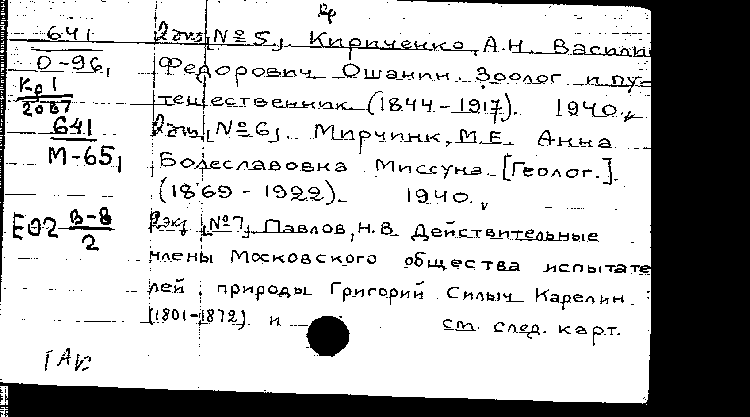 641 2 экз. №5. Кириченко, А.Н. Васили
О-96, Федорович Ошанин. Зоолог и пу-
Кр1 тешественник (1844-1917). 1940.
2087
641 2 экз. №6. Мирчинк, М.Е. Анна
М-65, Болеславовна Миссуна. [Геолог.]
(1869 - 1922). 1940.
Е02 В-8 2 экз. №7. Павлов, Н.В. Действительные
2 члены Московского общества испытате
лей природы Григорий Силыч Карелин.
(1801-1872) и см. след. карт.